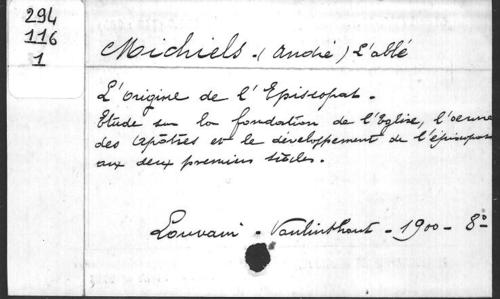 294
116
1
Michiels - (André) L'abbé
L'Origine de l'Episcopat -
Etude sur la fondation de l'Eglise, l'oeuvre
des apôtres et le développement de l'épiscopat
aux deux premiers siècles.
Louvain - Vanlinthout - 1900 - 8°